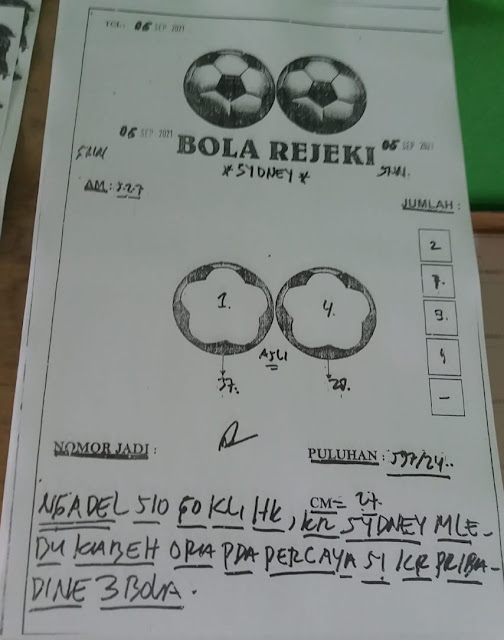 TGL: 06 SEP 2021
06 SEP 2021
06 SEP 2021
BOLA REJEKI
*SYDNEY*
AM:
JUMLAH :
2
7.
9.
4
-
1.
4.
ASLI
37.
28.
NOMOR JADI :
PULUHAN : 597/24..
CM= 27.
NGADEL 510 GO KLI HK, KR SYDNEY MLE-
DU KABEH ORA PDA PERCAYA SI KR PRIBA-
DINE 3 BOLA.